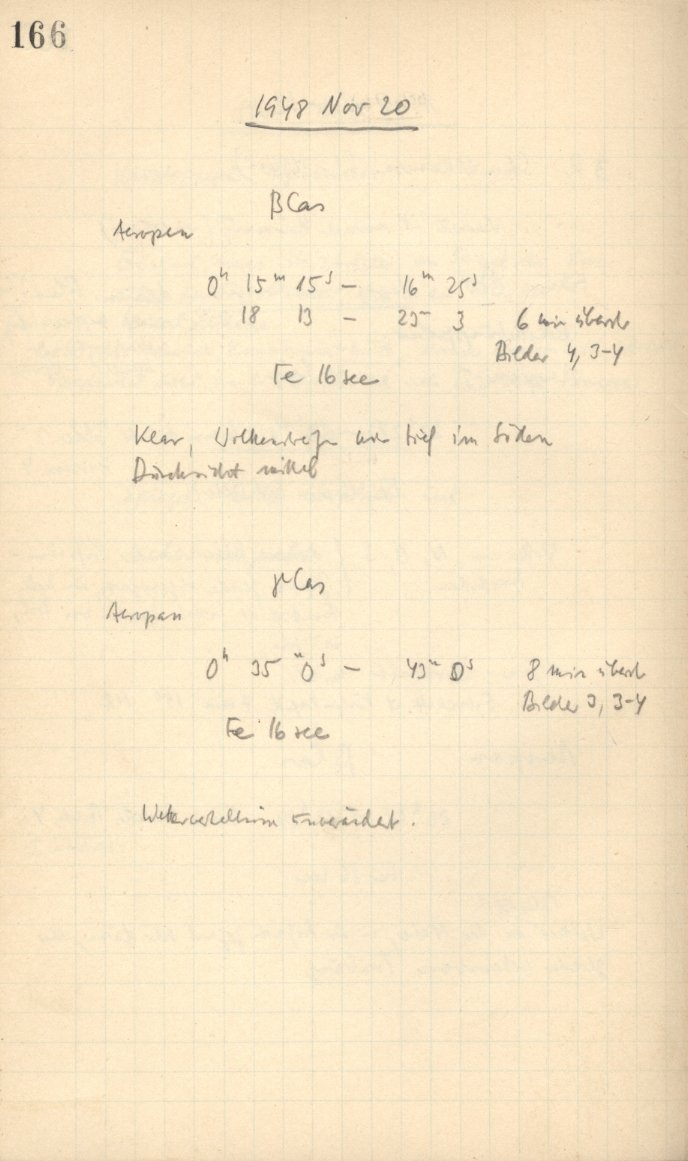 166
1948 Nov 20
β Cas
Aeropan
0h 15m 15s – 16m 25s
18 13 – 25 3 6 min überb
Bilder 4, 3-4
Fe 16 sec
Klar, Wolkenstreifen nur tief im Süden
Durchsicht mittel
γ Cas
Aeropan
0h 35m 0s – 43m 0s 8 min überb
Bilder 3, 3-4
Fe 16 sec
Wetterverhältnisse unverändert.